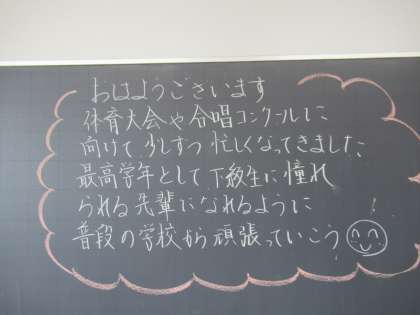 おはようございます
体育大会や合唱コンクールに
向けて少しずつ忙しくなってきました
最高学年として下級生に憧れ
られる先輩になれるように
普段の学校から頑張っていこう